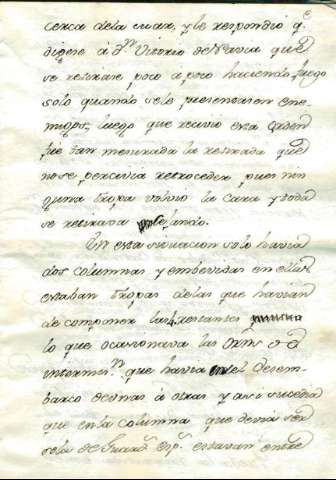 cerca dela suar, y le respondio q.e
digese á D.n Vitorio de Navia que
se retirase poco a poco haciendo fuego
solo quando sele presentasen ene-
migos, luego que recivio esta orden
fue tan mesurada la retirada que
nose percivia retroceder, pues nin
guna tropa volvio la cara y toda
se retirava
En esta situacion solo havia
dos columnas y embevidas en ellas
estaban tropas delas que havian
de componer las 4 restantes
lo que ocasionava las
que havia en el desem-
barco de unas á otras y asi sucedia
que en la columna que devia ser
sola de Guard.s esp.s estavan entre